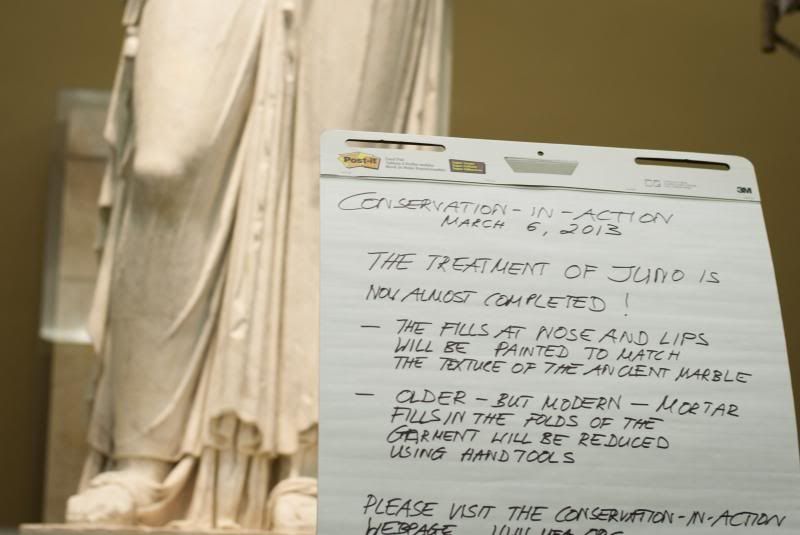 Post-it
3M
CONSERVATION-IN-ACTION
MARCH 6, 2013
THE TREATMENT OF JUNO IS
NOW ALMOST COMPLETED!
— THE FILLS AT NOSE AND LIPS
WILL BE PAINTED TO MATCH
THE TEXTURE OF THE ANCIENT MARBLE
— OLDER - BUT MODERN - MORTAR
FILLS IN THE FOLDS OF THE
GARMENT WILL BE REDUCED
USING HANDTOOLS
PLEASE VISIT THE CONSERVATION-IN-ACTION
WEBPAGE